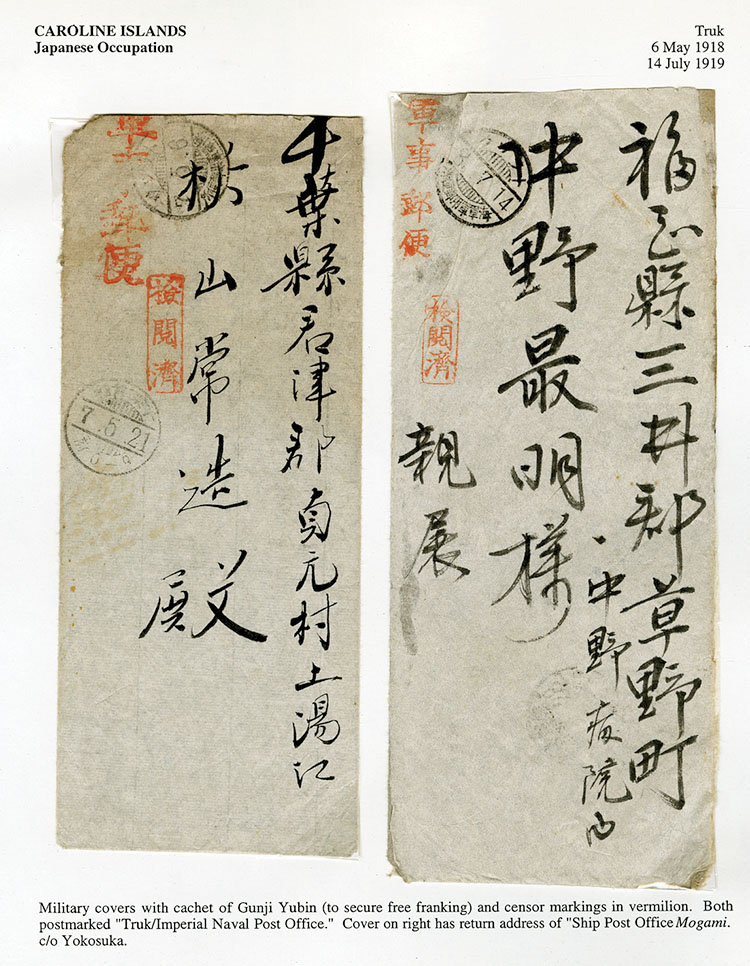 CAROLINE ISLANDS
Japanese Occupation
Truk
6 May 1918
14 July 1919
千葉縣君津郡貞元村上湯江
山常造殿
軍事郵便
検閲濟
7.5.21
福岡縣三井郡草野町
中野病院内
中野最明様
親展
軍事郵便
検閲濟
7.14
Military covers with cachet of Gunji Yubin (to secure free franking) and censor markings in vermilion. Both
postmarked "Truk/Imperial Naval Post Office." Cover on right has return address of "Ship Post Office Mogami.
c/o Yokosuka.